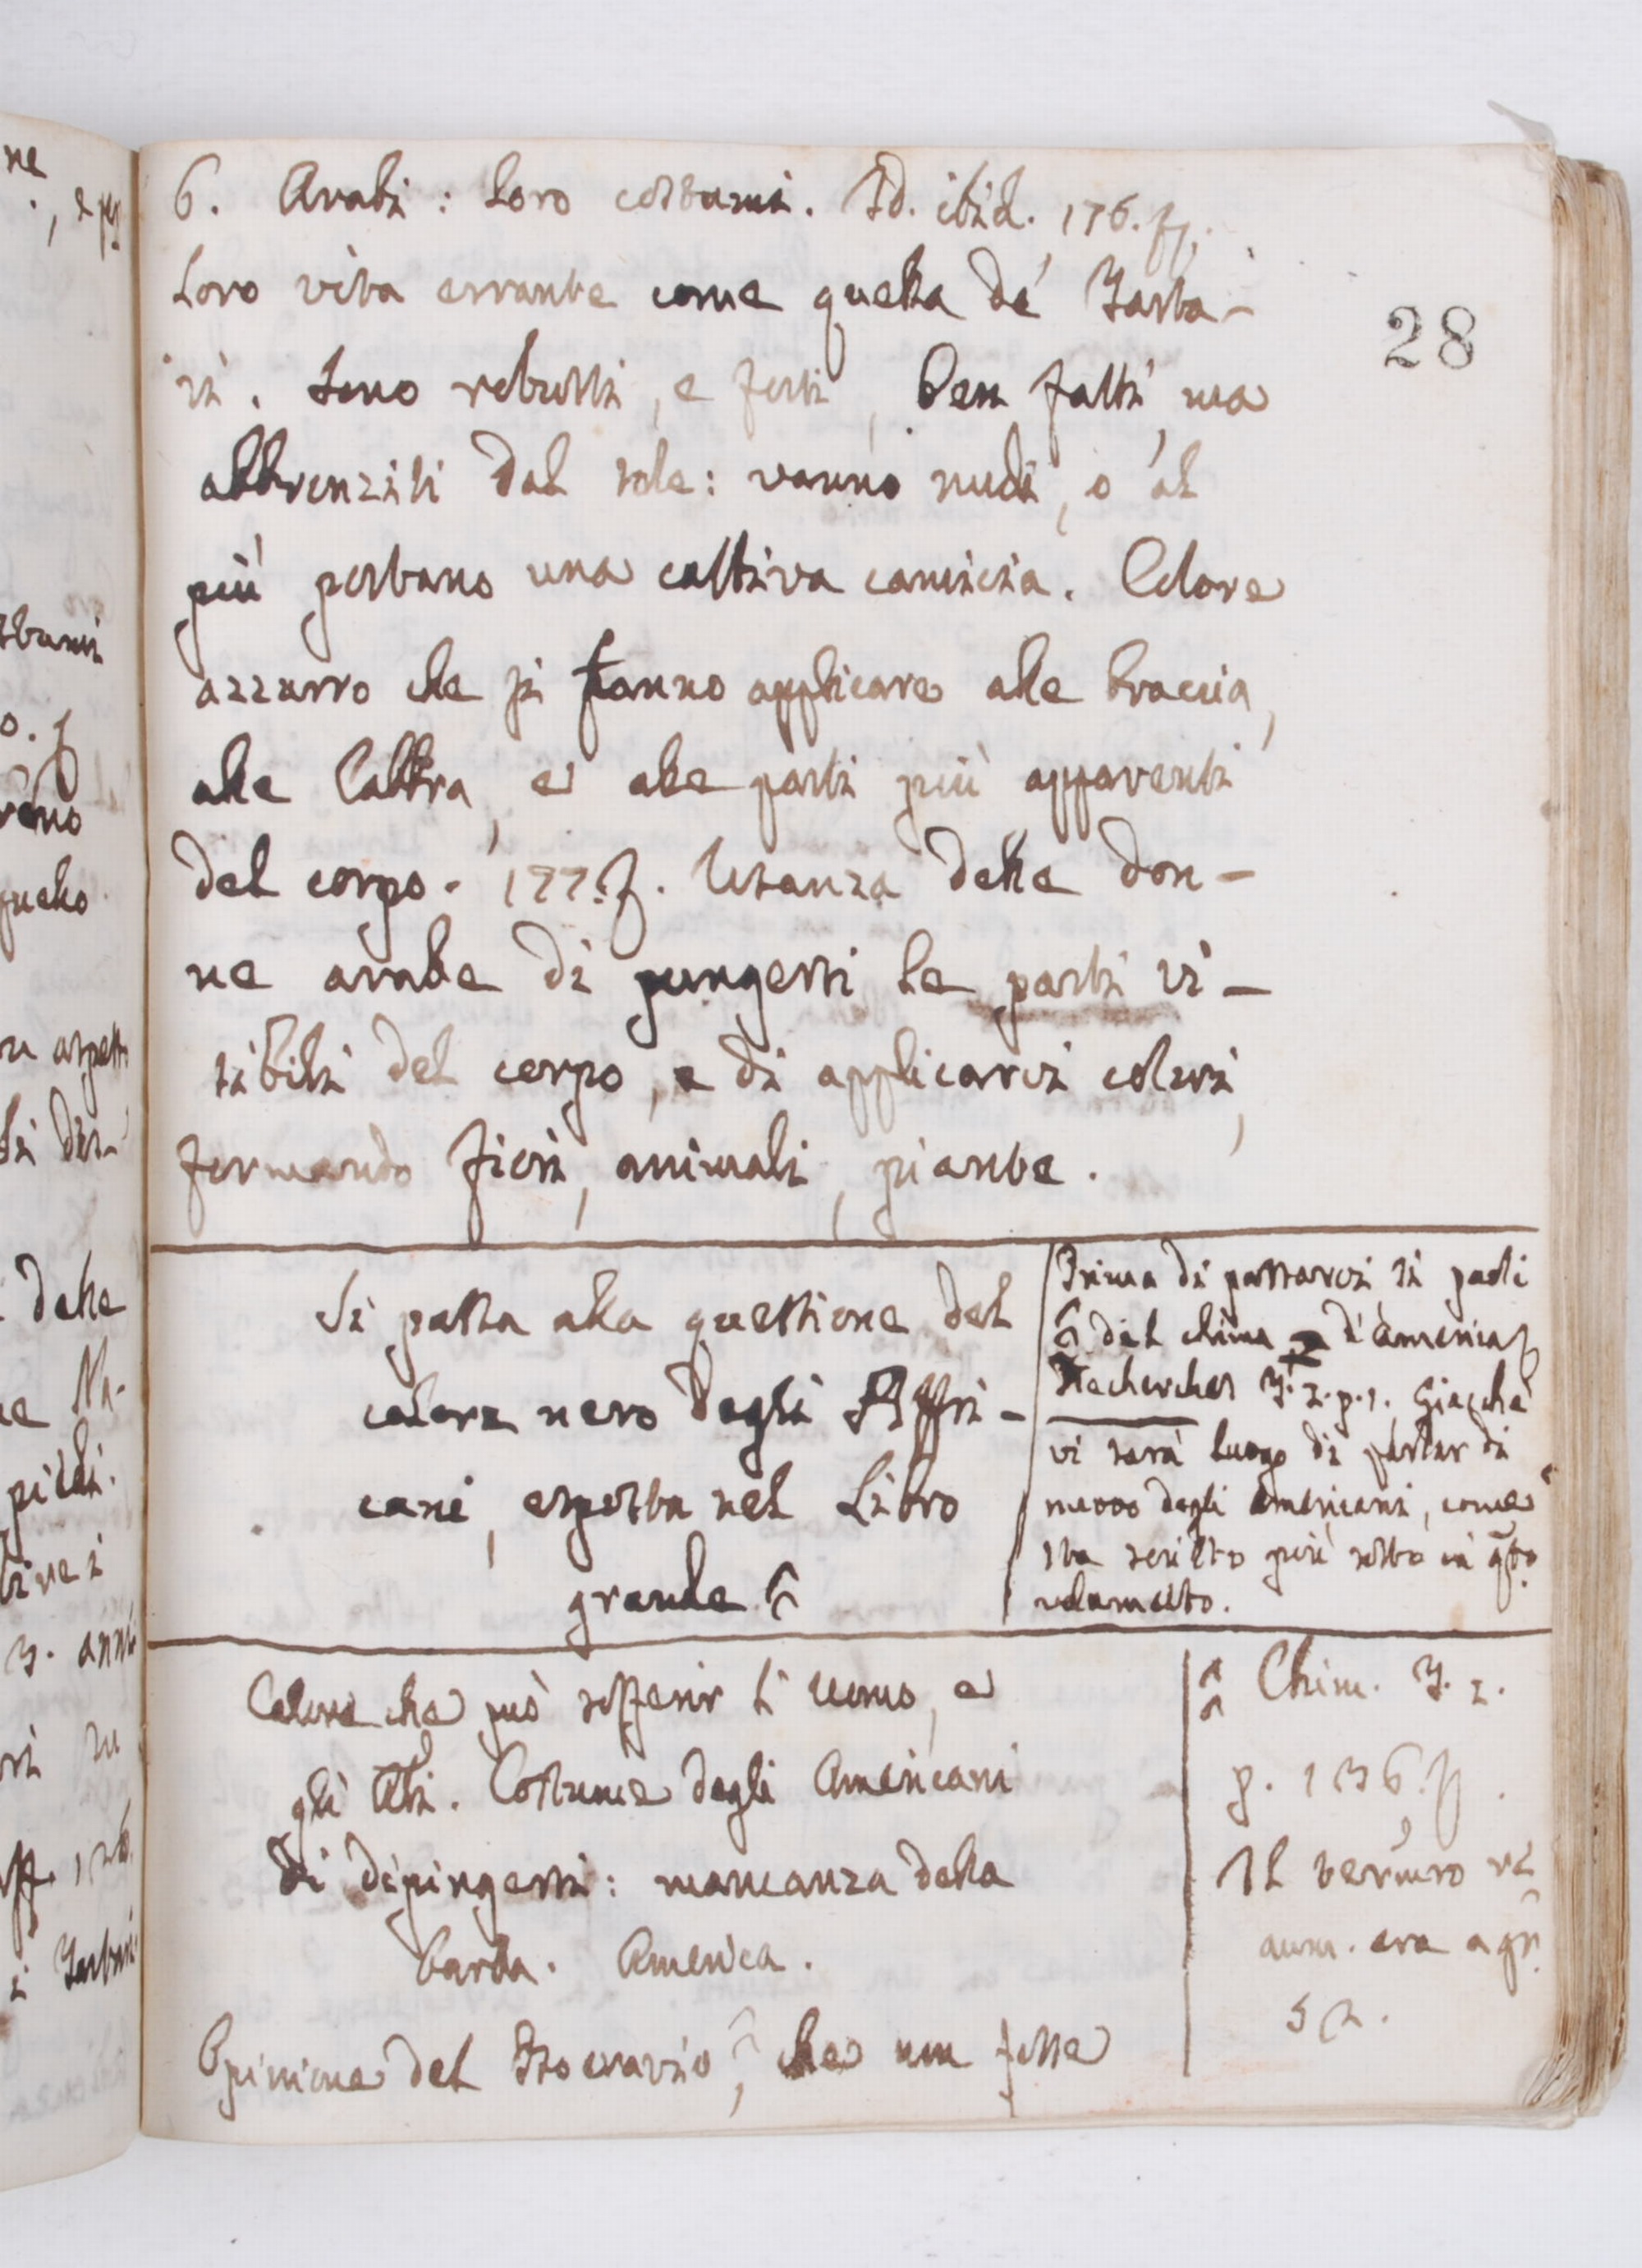 6. Arabi: loro costumi. Id. ibid. 176. ff.
Loro vita errante come quella de' Tarta-
ri. Sono robusti, e forti, ben fatti, ma
abbronziti dal sole: vanno nudi, o al
più portano una cattiva camicia. Colore
azzurro che si fanno applicare alle braccia,
alle labbra, e alle parti più apparenti
del corpo. 177. f. Usanza delle don-
ne arabe di pungersi le parti vi-
sibili del corpo, e di applicarvi colori,
formando fiori, animali, piante.
28
Si passa alla questione del
colore nero degli Affri-
cani, esposta nel Libro
grande.
Prima di passarvi si parli
del clima d'America
Recherches T. 2. p. 1. Giacché
vi sarà luogo di parlar di
nuovo degli Americani, come
sta scritto più sotto in qto
volumetto.
Calore che può soffrir l'uomo, e
gli Abi. Costume degli Americani
di dipingersi: mancanza della
barba. America.
Opinione del, che non fosse
Chim. T. 2.
p. 136. ff.
Il termro re
aum. era a gr.
52.